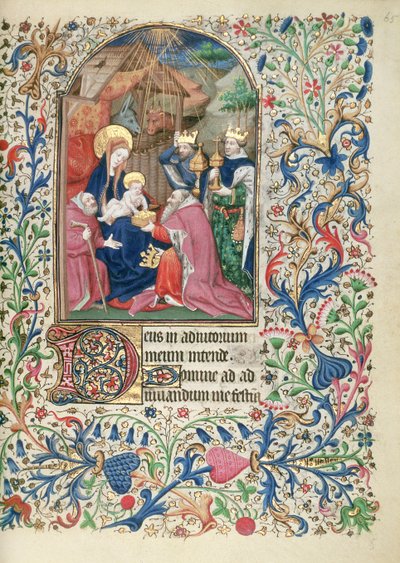 65
Deus in adiutorium
meum intende.
Domine ad ad
iuuandum me festi